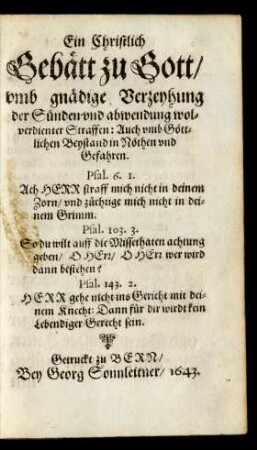 Ein Christlich
Gebätt zu Gott/
vmb gnädige Verzeyhung
der Sünden vnd abwendung wol-
verdienter Straffen: Auch vmb Gött-
lichen Beystand in Nöthen vnd
Gefahren.
Psal. 6. 1.
Ach HERR straff mich nicht in deinem
Zorn/ vnd züchtige mich nicht in dei-
nem Grimm.
Psal. 103. 3.
So du wilt auff die Missethaten achtung
geben/ O HErr/ O HErr wer wird
dann bestehen?
Psal. 143. 2.
HERR gehe nicht ins Gericht mit dei-
nem Knecht: Dann für dir wirdt kein
Lebendiger Gerecht sein.
Getruckt zu BERN/
Bey Georg Sonnleitner/ 1643.